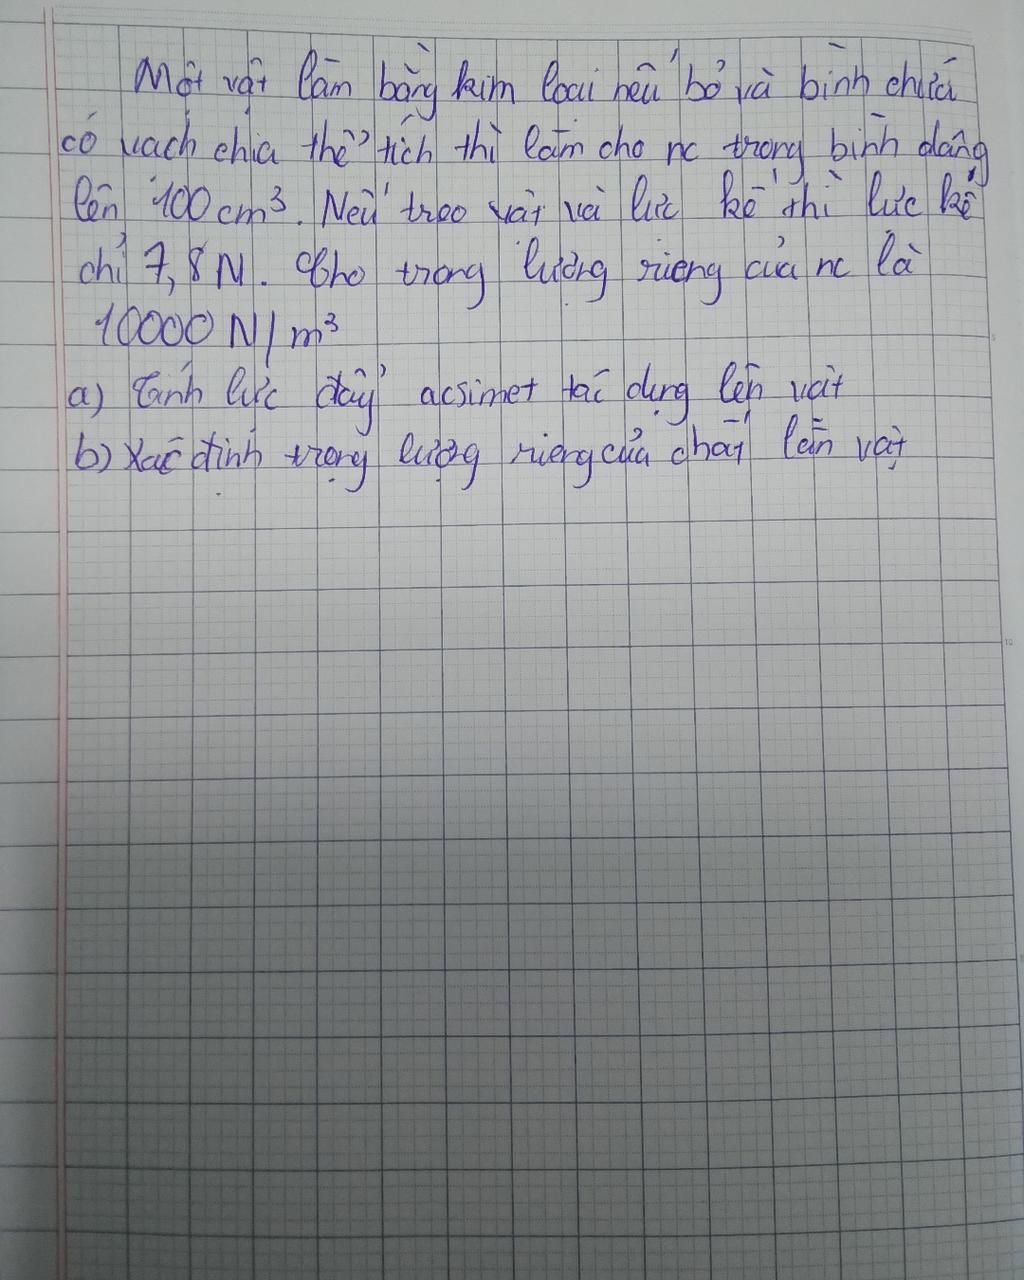 Một vật làm bằng kim loại nếu bỏ và bình chứa
có vach chia thể tích thì làm cho nc trong bình dâng
lên 100 cm³. Nếu treo vật và lực kế thì lực kế
chỉ 7,8 N. Cho trong lượng riêng của nc là
10000 N/m³
a) Tính lực đẩy acsimet tác dụng lên vật
b) Xác định trọng lượng riêng của chất làm vật